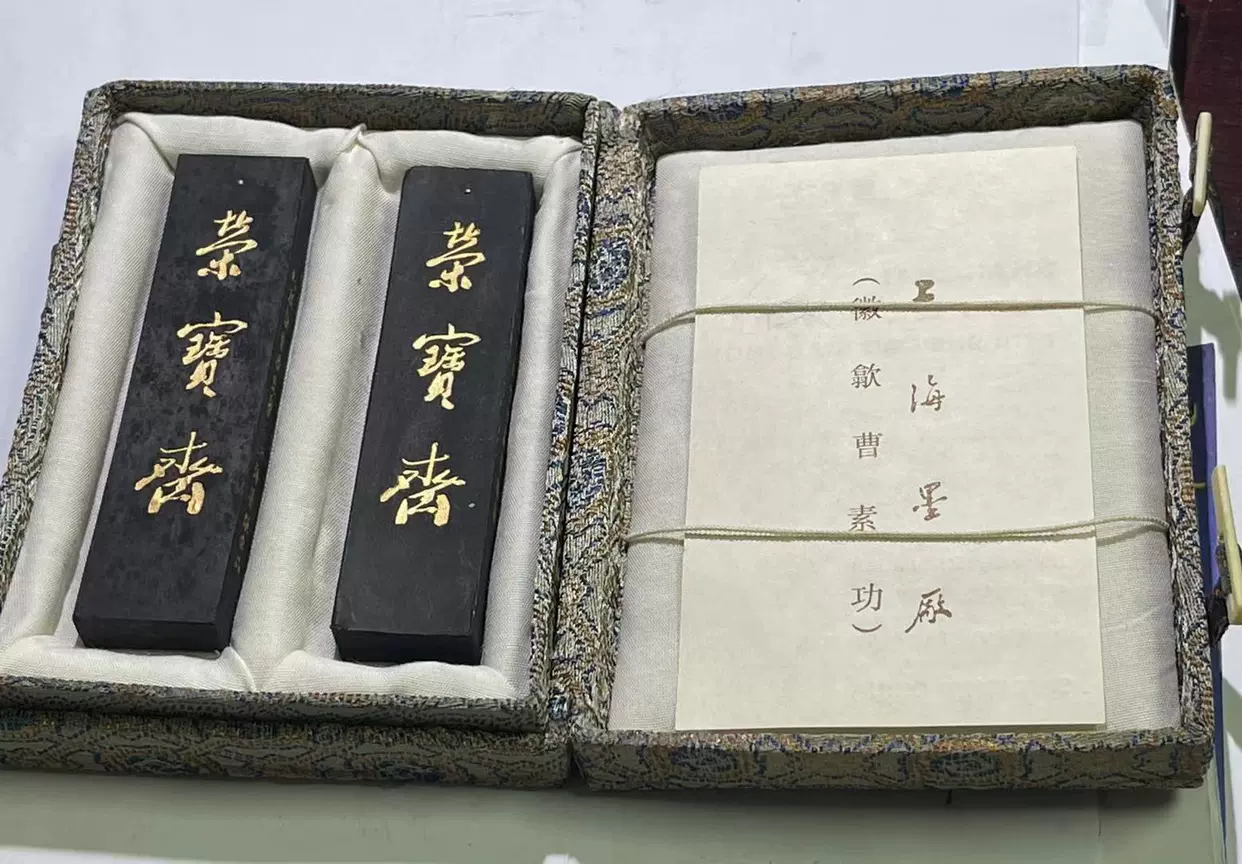 榮寶齋
榮寶齋
上海墨厰
（徽歙曹素功）